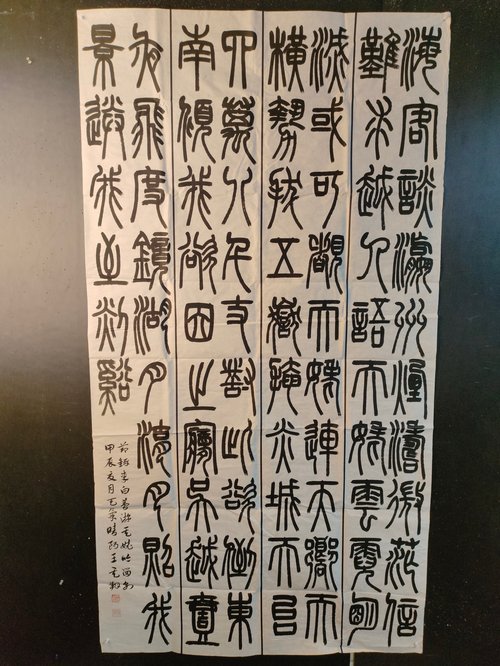 海客談瀛洲煙濤微茫信
難求越人語天姥雲霓明
滅或可覩天姥連天嚮天
橫勢拔五嶽掩赤城天台
四萬八千丈對此欲倒東
南傾我欲因之夢吳越壹
夜飛度鏡湖月湖月照我
景送我至剡谿
節錄李白夢游天姥吟留别
甲辰夏月